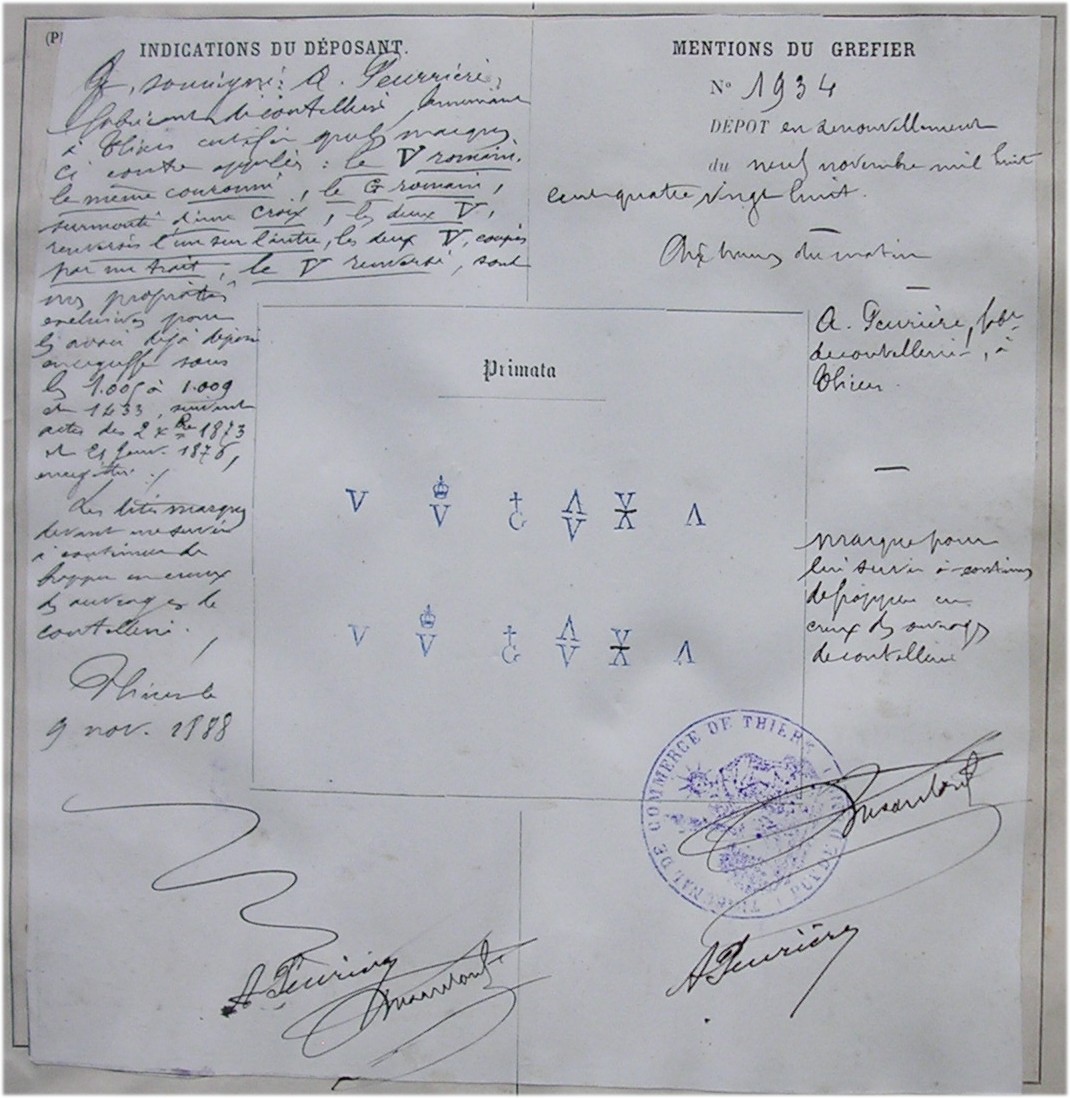 INDICATIONS DU DÉPOSANT.
soussigné A. Peurrière,
fabricant de coutellerie, demeurant
à Thiers certifie que les marques
ci contre appelées : le V romain,
le même couronné, le G romain,
surmonté d'une croix, les deux V,
renversés l'un sur l'autre, les deux V, coupés
par un trait, le V renversé, sont
mes propriétés
exclusives pour
les avoir déjà déposé
au greffe sous
les 1.005 à 1.009
et 1433, suivant
actes des 2 xbre 1873
et 21 janv. 1876,
enregistrés.
Les dites marques
devant me servir
à continuer de
frapper en creux
des ouvrages de
coutellerie.
Thiers le
9 nov. 1888
A Peurrière
MENTIONS DU GREFIER
No 1934
DÉPOT en renouvellement
du neuf novembre mil huit
cent quatre vingt huit.
heures du matin
A. Peurrière, fabt
de coutellerie, à
Thiers.
marque pour
lui servir à continuer
de frapper en
creux des ouvrages
de coutellerie
Primata
V V G Λ V V Λ Λ
V V G Λ V V Λ Λ
TRIBUNAL DE COMMERCE DE THIERS
PUY DE DÔME
A Peurrière